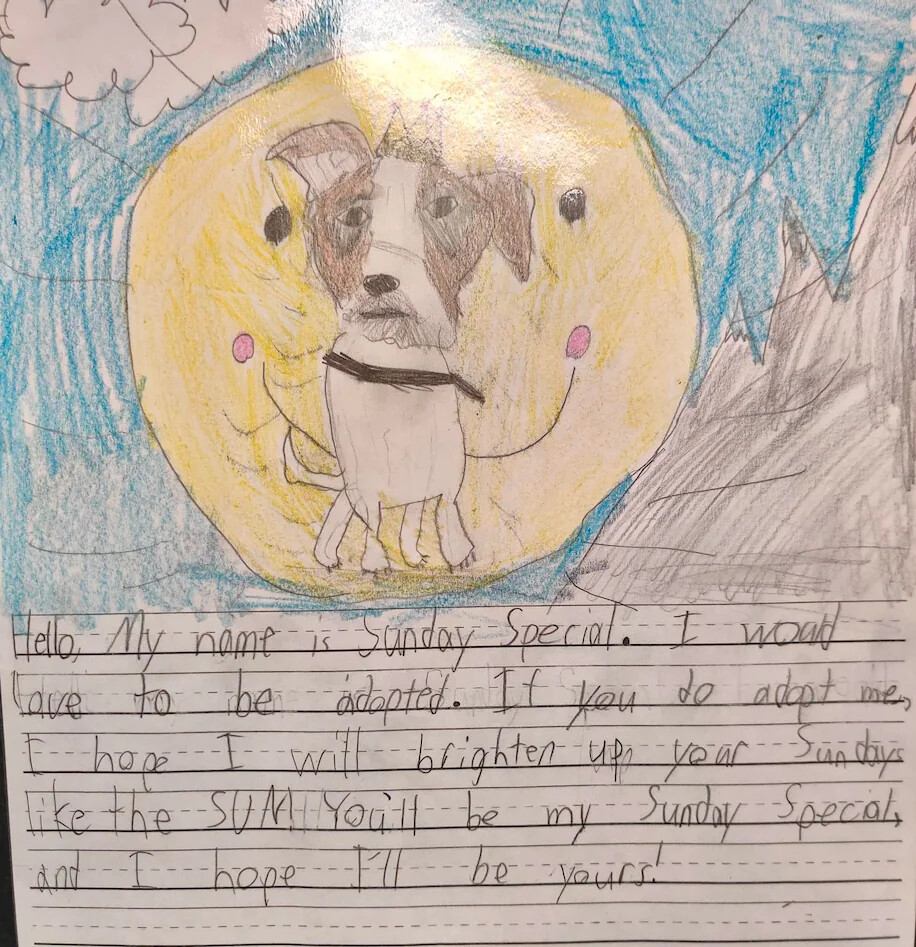 Hello, My name is Sunday Special. I would
love to be adopted. If you do adopt me,
I hope I will brighten up your Sundays
like the SUN! You'll be my Sunday Special,
and I hope I'll be yours!